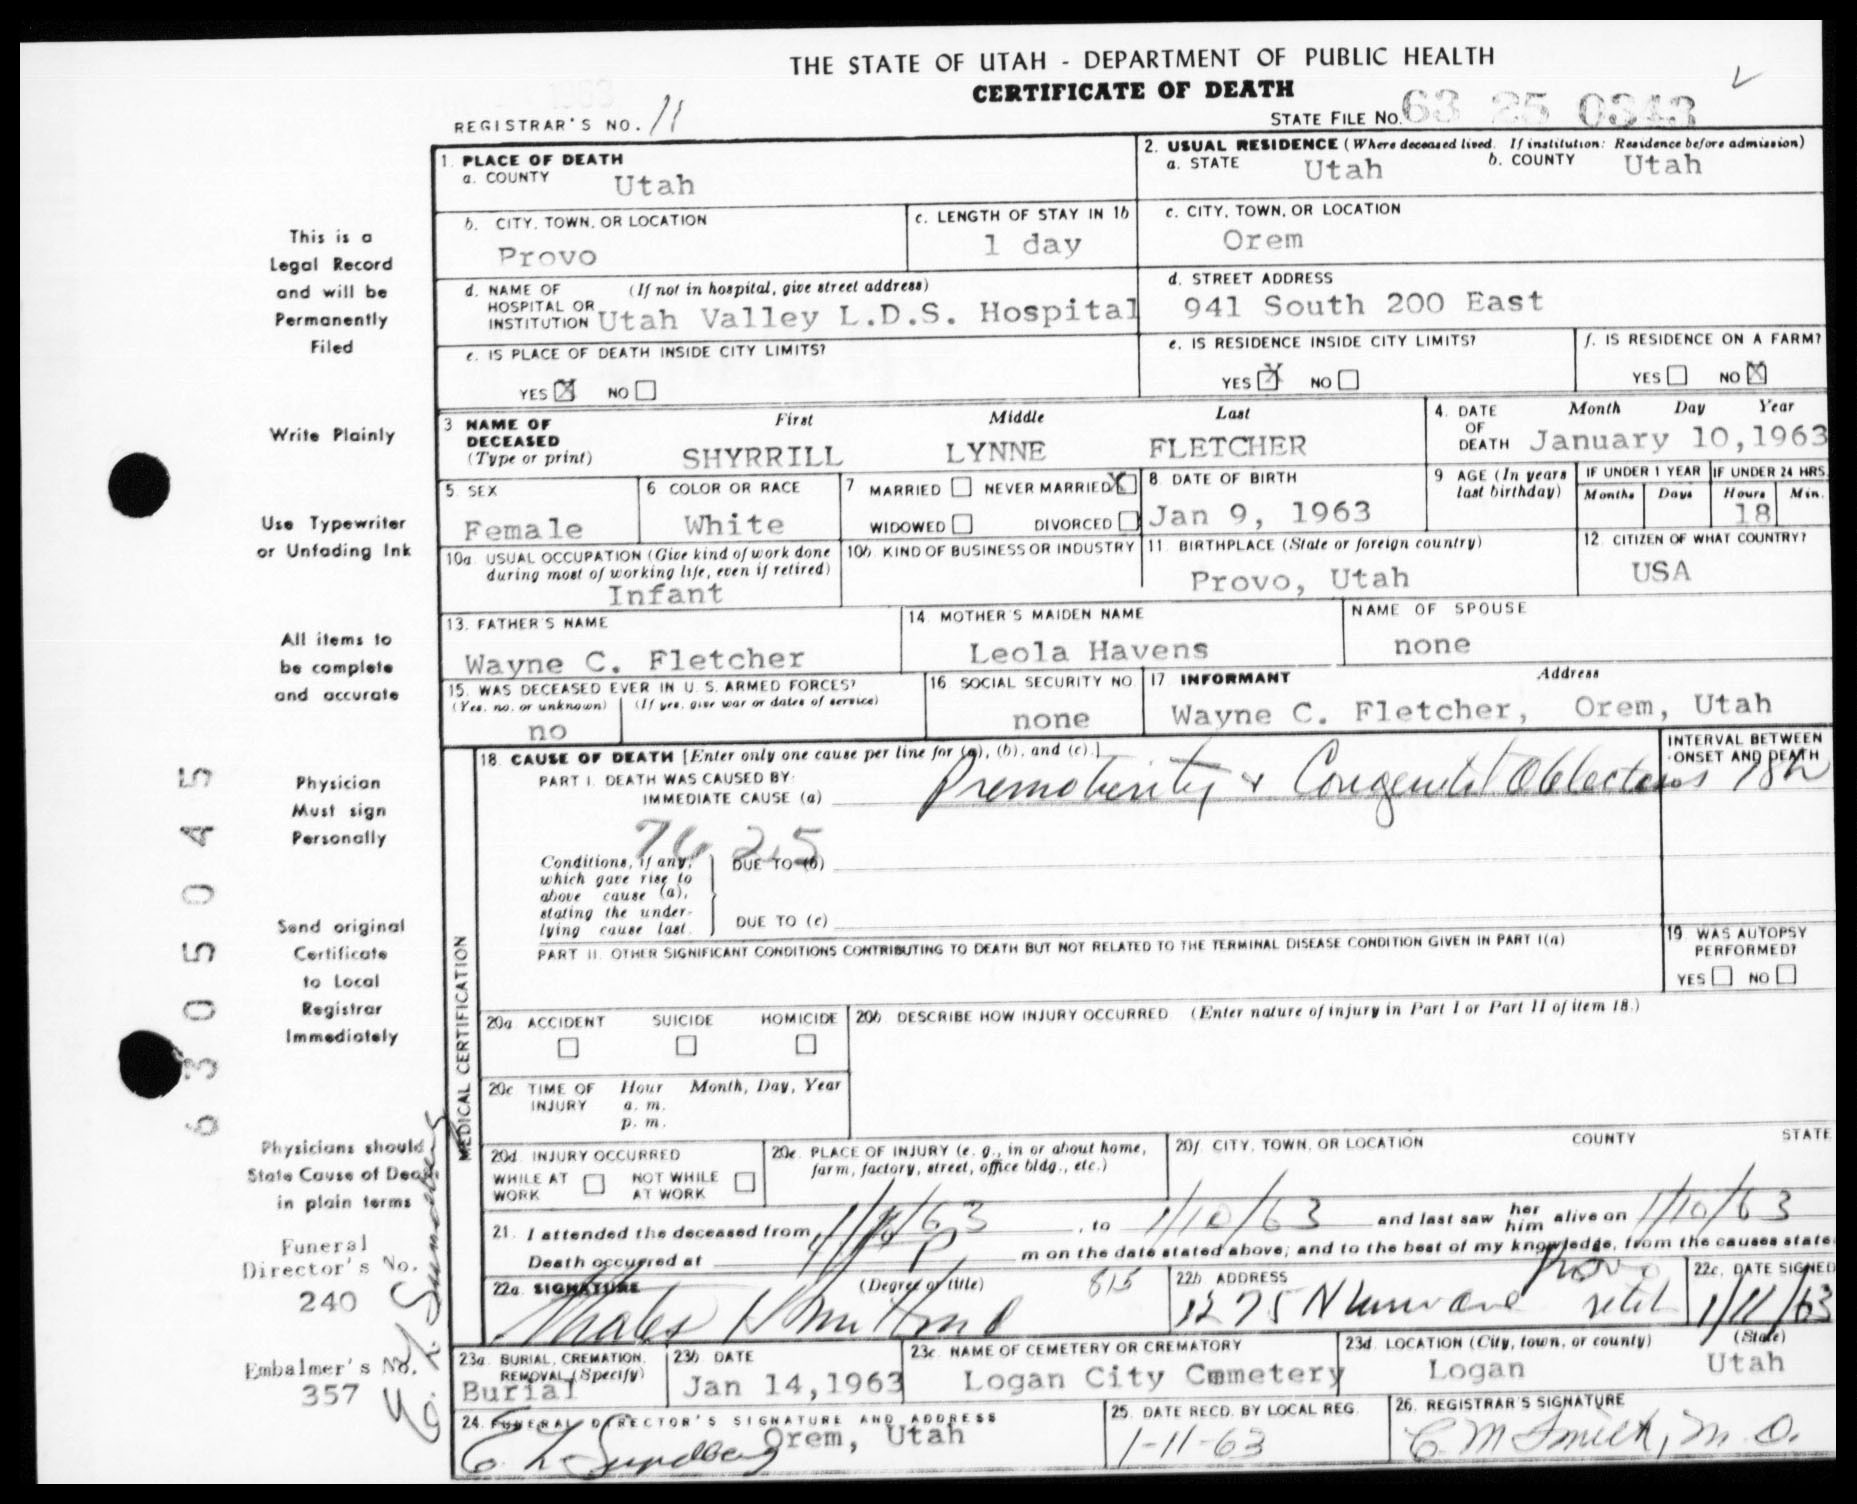 THE STATE OF UTAH - DEPARTMENT OF PUBLIC HEALTH
CERTIFICATE OF DEATH
REGISTRAR'S NO. 11
STATE FILE NO. 63 25 0343
1. PLACE OF DEATH
a. COUNTY Utah
2. USUAL RESIDENCE (Where deceased lived. If institution: Residence before admission)
a. STATE Utah b. COUNTY Utah
b. CITY, TOWN, OR LOCATION Provo
c. LENGTH OF STAY IN 1b 1 day
c. CITY, TOWN, OR LOCATION Orem
d. NAME OF HOSPITAL OR INSTITUTION (If not in hospital, give street address) Utah Valley L.D.S. Hospital
d. STREET ADDRESS 941 South 200 East
e. IS PLACE OF DEATH INSIDE CITY LIMITS?
YES ☒ NO ☐
e. IS RESIDENCE INSIDE CITY LIMITS?
YES ☒ NO ☐
f. IS RESIDENCE ON A FARM?
YES ☐ NO ☒
3 NAME OF DECEASED (Type or print) First Middle Last
SHYRRILL LYNNE FLETCHER
4. DATE OF DEATH Month Day Year
January 10,1963
5. SEX Female
6 COLOR OR RACE White
7 MARRIED ☐ NEVER MARRIED ☒
WIDOWED ☐ DIVORCED ☐
8 DATE OF BIRTH Jan 9, 1963
9 AGE (In years last birthday)
IF UNDER 1 YEAR Months Days
IF UNDER 24 HRS. Hours Min.
18
10a USUAL OCCUPATION (Give kind of work done during most of working life, even if retired)
Infant
10b. KIND OF BUSINESS OR INDUSTRY
11. BIRTHPLACE (State or foreign country)
Provo, Utah
12 CITIZEN OF WHAT COUNTRY?
USA
13. FATHER'S NAME
Wayne C. Fletcher
14. MOTHER'S MAIDEN NAME
Leola Havens
NAME OF SPOUSE
none
15. WAS DECEASED EVER IN U.S. ARMED FORCES?
(Yes, no, or unknown) (If yes, give war or dates of service)
no
16 SOCIAL SECURITY NO.
none
17 INFORMANT Address
Wayne C. Fletcher, Orem, Utah
MEDICAL CERTIFICATION
18. CAUSE OF DEATH [Enter only one cause per line for (a), (b), and (c).]
INTERVAL BETWEEN ONSET AND DEATH
PART I. DEATH WAS CAUSED BY:
IMMEDIATE CAUSE (a) Prematurity + Congenital 18h
7625
Conditions, if any, which gave rise to above cause (a), stating the underlying cause last.
DUE TO (b)
DUE TO (c)
PART II. OTHER SIGNIFICANT CONDITIONS CONTRIBUTING TO DEATH BUT NOT RELATED TO THE TERMINAL DISEASE CONDITION GIVEN IN PART I(a)
19. WAS AUTOPSY PERFORMED?
YES ☐ NO ☐
20a. ACCIDENT SUICIDE HOMICIDE
☐ ☐ ☐
20b DESCRIBE HOW INJURY OCCURRED (Enter nature of injury in Part I or Part II of item 18.)
20c TIME OF INJURY Hour Month, Day, Year
a. m.
p. m.
20d. INJURY OCCURRED
WHILE AT WORK ☐ NOT WHILE AT WORK ☐
20e. PLACE OF INJURY (e. g., in or about home, farm, factory, street, office bldg., etc.)
20f CITY, TOWN, OR LOCATION COUNTY STATE
21. I attended the deceased from /63, to 1/10/63 and last saw her him alive on 1/10/63
Death occurred at P m on the date stated above; and to the best of my knowledge, from the causes state
22a SIGNATURE (Degree or title) 815
22b ADDRESS 1275 N Provo
22c. DATE SIGNED 1/11/63
23a. BURIAL, CREMATION, REMOVAL (Specify)
Burial
23b DATE
Jan 14,1963
23c. NAME OF CEMETERY OR CREMATORY
Logan City Cemetery
23d. LOCATION (City, town, or county) (State)
Logan Utah
24. FUNERAL DIRECTOR'S SIGNATURE AND ADDRESS
E. L. Sundberg Orem, Utah
25. DATE RECD. BY LOCAL REG.
1-11-63
26. REGISTRAR'S SIGNATURE
C. M Smith, M. D.
This is a
Legal Record
and will be
Permanently
Filed
Write Plainly
Use Typewriter
or Unfading Ink
All items to
be complete
and accurate
Physician
Must sign
Personally
Send original
Certificate
to Local
Registrar
Immediately
Physicians should
State Cause of Dea
in plain terms
Funeral
Director's No.
240
Embalmer's No.
357
E. L. Sundberg
63050545